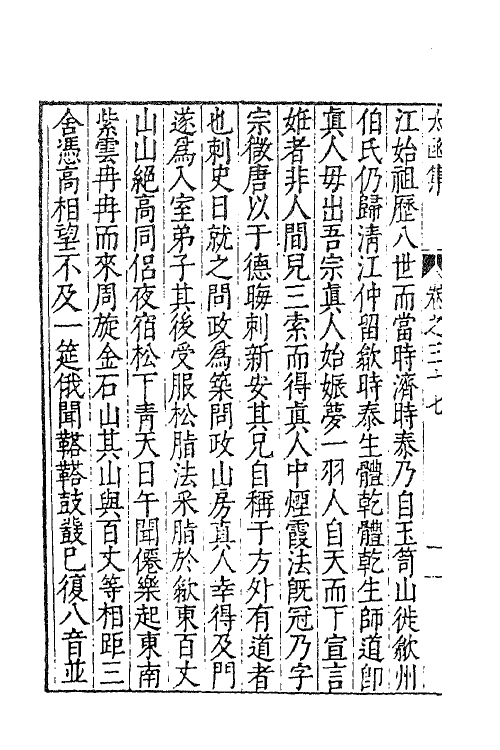 太函集　卷之三十七　一
江始祖歷八世而當時濟時泰乃自玉笥山徙歙州
伯氏仍歸淸江仲留歙時泰生體乾體乾生師道卽
眞人毋出吾宗眞人始娠夢一羽人自天而下宣言
姙者非人間兒三索而得眞人中煙霞法旣冠乃字
宗微唐以于德晦刺新安其兄自稱于方外有道者
也刺史日就之問政爲築問政山房眞人幸得及門
遂爲入室弟子其後受服松脂法采脂於歙東百丈
山山絕高同侶夜宿松下靑天日午聞僊樂起東南
紫雲冉冉而來周旋金石山其山與百丈等相距三
舍憑高相望不及一筵俄聞鞳鞳鼓鼗已復八音並